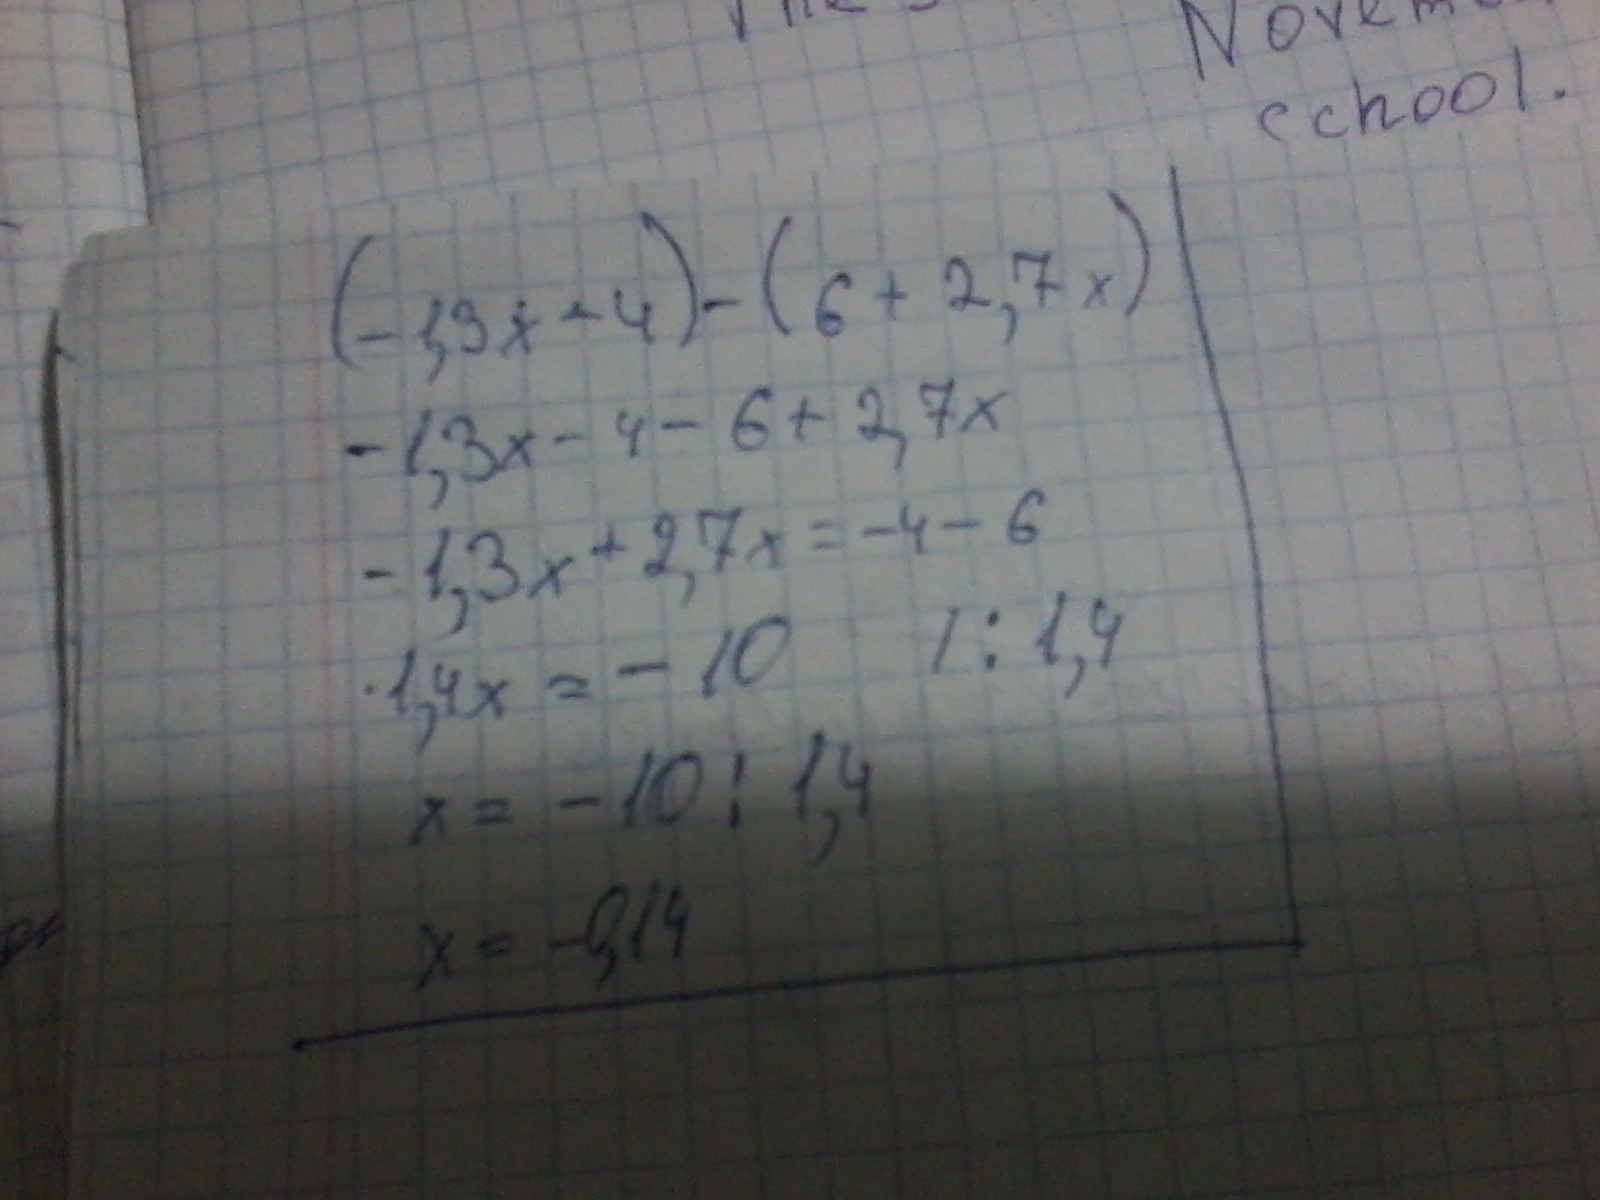 school.
(-1,3x - 4) - (6 + 2,7x)
-1,3x - 4 - 6 + 2,7x
-1,3x + 2,7x = -4 - 6
1,4x = -10 / : 1,4
x = -10 : 1,4
x = -0,14